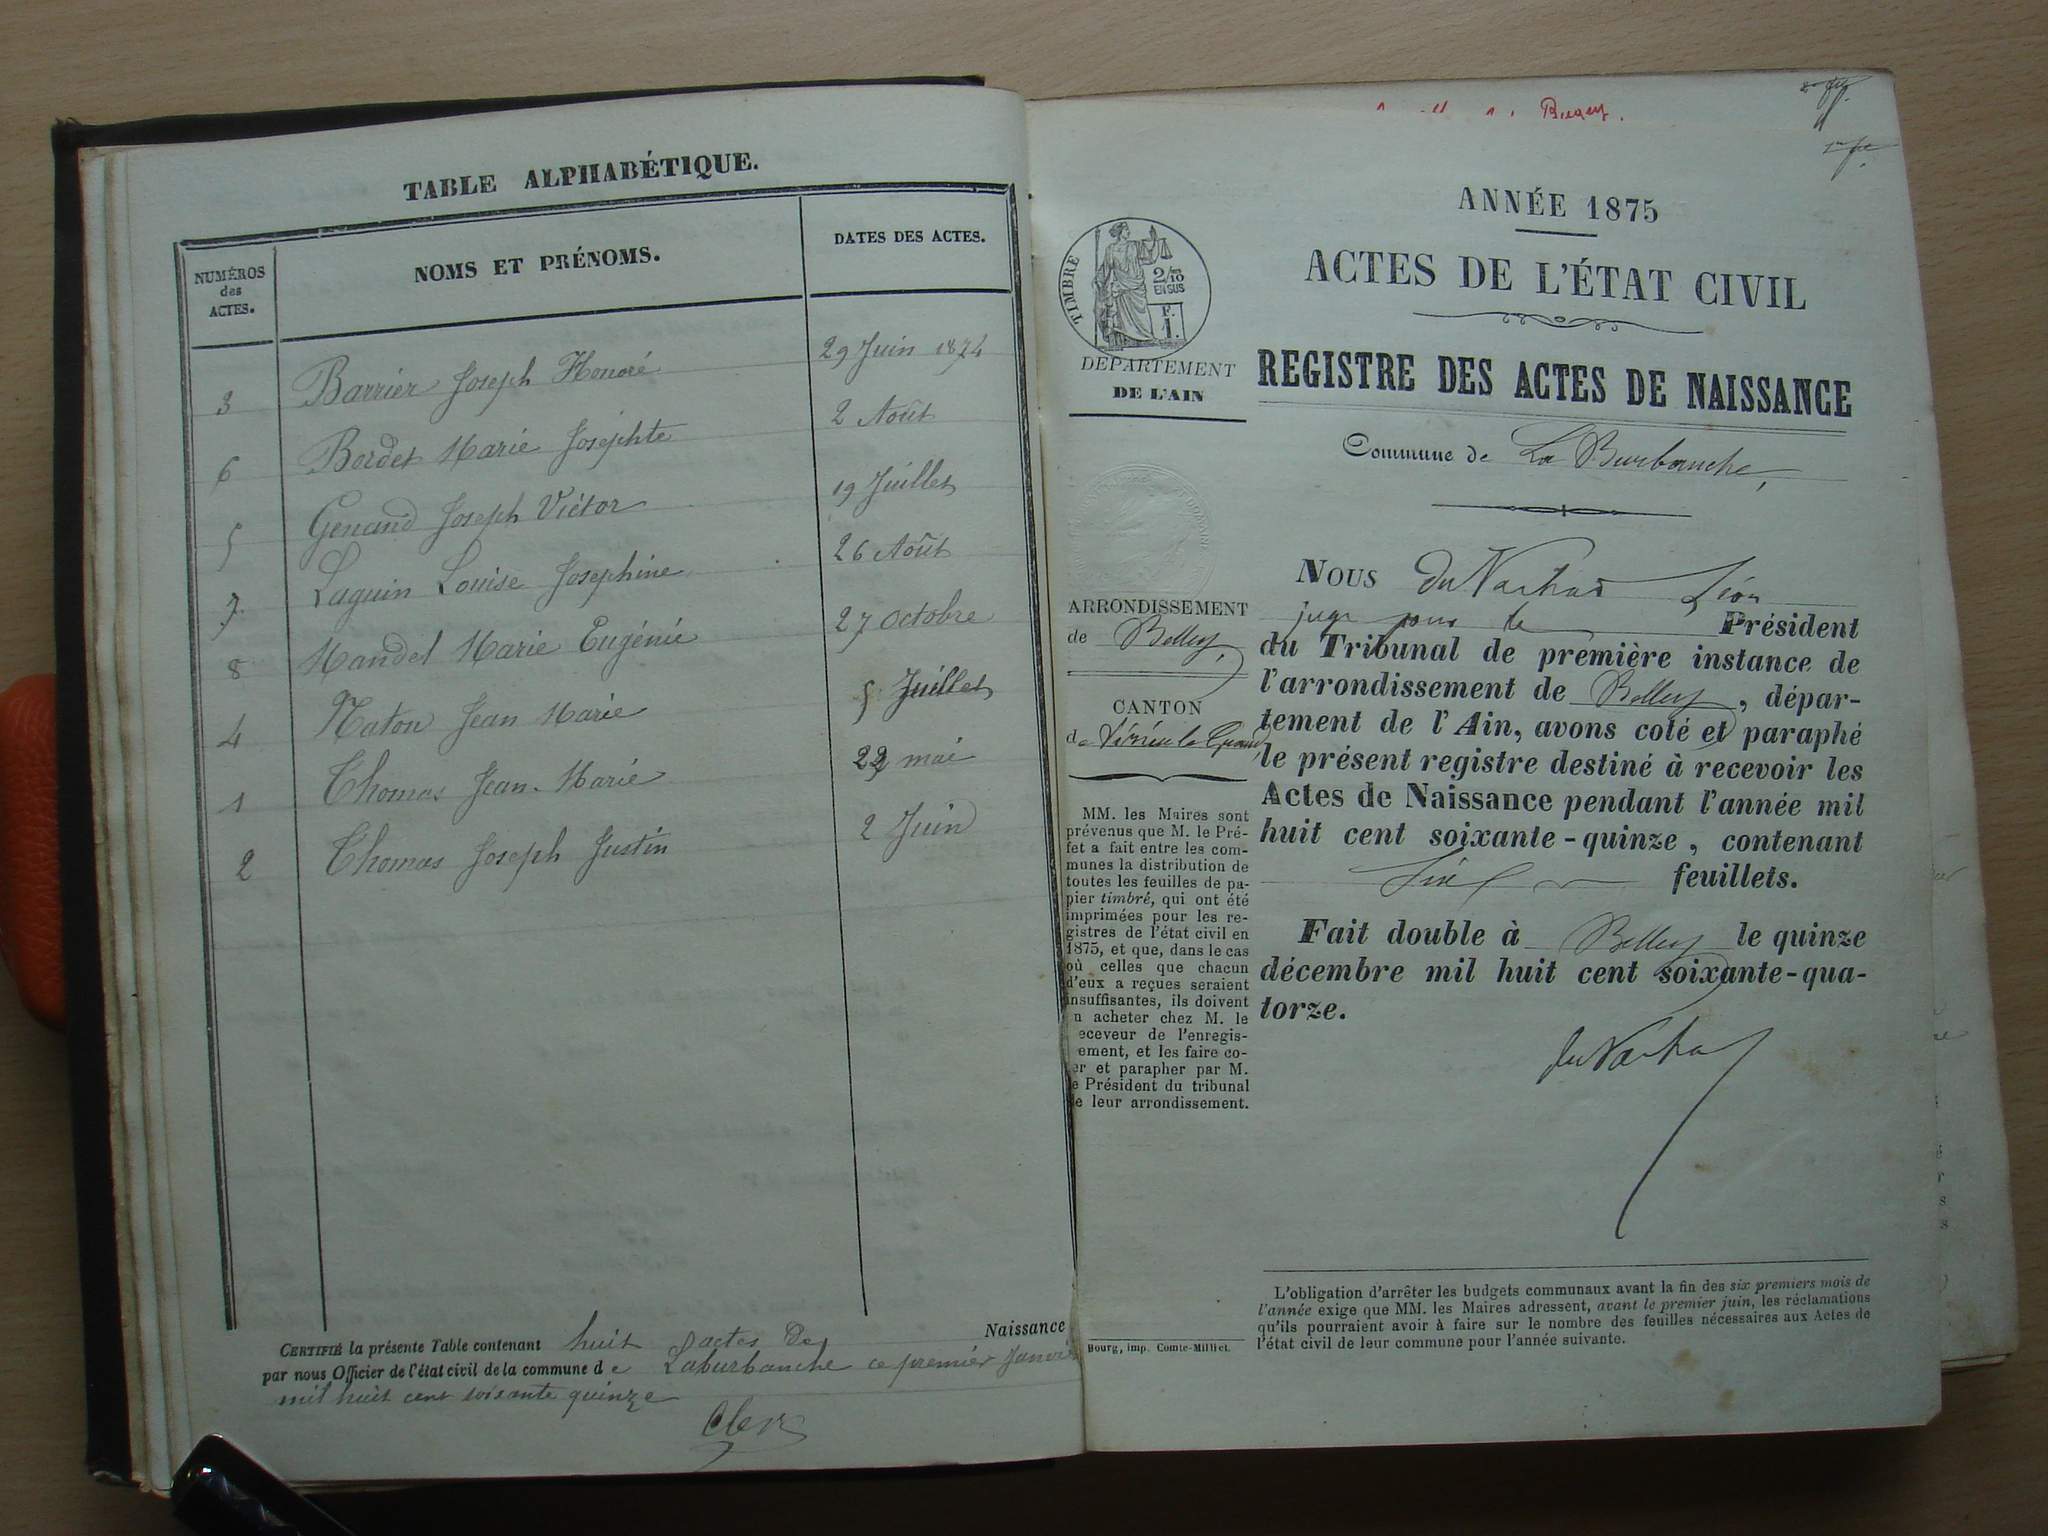 TABLE ALPHABÉTIQUE.
NUMÉROS
des
ACTES.
NOMS ET PRÉNOMS.
DATES DES ACTES.
3 Barrier Joseph Honoré 29 Juin 1874
6 Bordet Marie Josephte 2 Août
5 Genand Joseph Victor 19 Juillet
7 Laguin Louise Josephine 26 Août
8 Mandel Marie Eugénie 27 Octobre
4 Naton Jean Marie 5 Juillet
1 Thomas Jean-Marie 22 mai
2 Thomas Joseph Justin 2 Juin
CERTIFIÉ la présente Table contenant huit actes de Naissance
par nous Officier de l'état civil de la commune de Laburbanche ce premier Janvier
mil huit cent soixante quinze
Clerc
Bugey.
ANNÉE 1875
ACTES DE L'ÉTAT CIVIL
REGISTRE DES ACTES DE NAISSANCE
Commune de La Burbanche,
TIMBRE
2/10
EN SUS
F.
1.
DÉPARTEMENT
DE L'AIN
ARRONDISSEMENT
de Belley,
CANTON
de Virieu le Grand
MM. les Maires sont
prévenus que M. le Pré-
fet a fait entre les com-
munes la distribution de
toutes les feuilles de pa-
pier timbré, qui ont été
imprimées pour les re-
gistres de l'état civil en
1875, et que, dans le cas
où celles que chacun
d'eux a reçues seraient
insuffisantes, ils doivent
n acheter chez M. le
eceveur de l'enregis-
ement, et les faire co-
er et parapher par M.
e Président du tribunal
e leur arrondissement.
Bourg, imp. Comte-Milliet.
NOUS Léon
juge pour le Président
du Tribunal de première instance de
l'arrondissement de Belley, dépar-
tement de l'Ain, avons coté et paraphé
le présent registre destiné à recevoir les
Actes de Naissance pendant l'année mil
huit cent soixante-quinze, contenant
Six feuillets.
Fait double à Belley le quinze
décembre mil huit cent soixante-qua-
torze.
L'obligation d'arrêter les budgets communaux avant la fin des six premiers mois de
l'année exige que MM. les Maires adressent, avant le premier juin, les réclamations
qu'ils pourraient avoir à faire sur le nombre des feuilles nécessaires aux Actes de
l'état civil de leur commune pour l'année suivante.